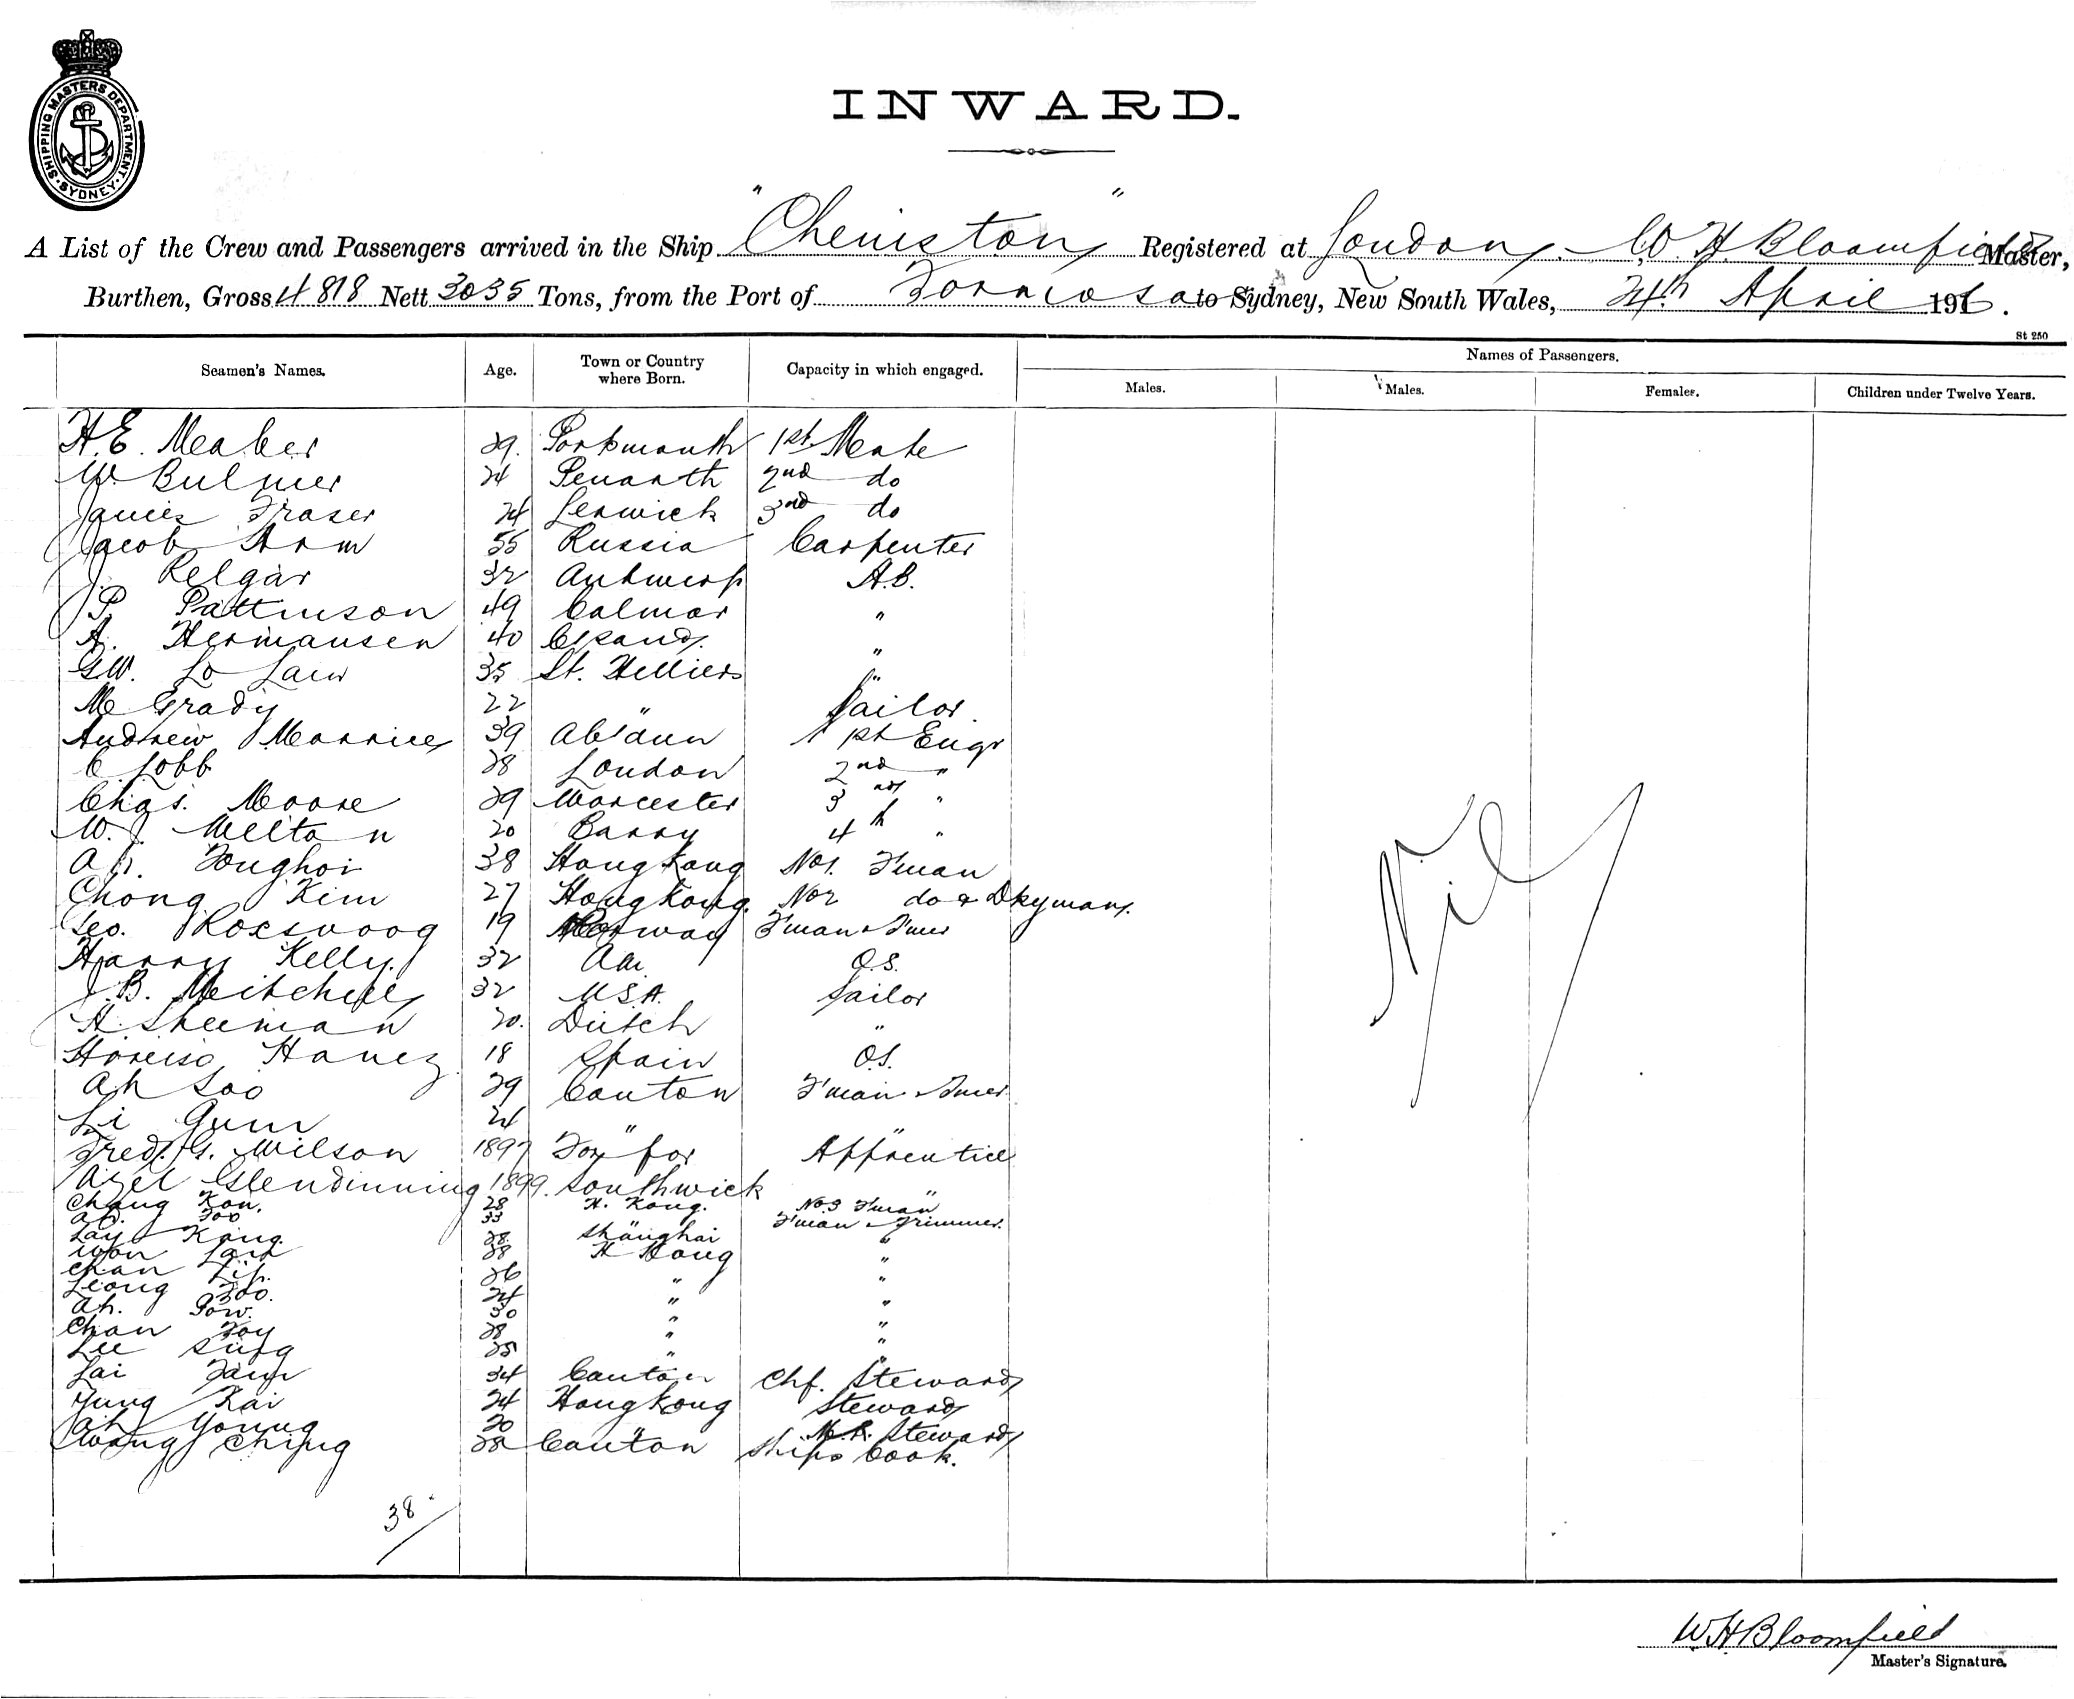 SHIPPING MASTERS DEPARTMENT. SYDNEY.
INWARD.
A List of the Crew and Passengers arrived in the Ship "Cheniston" Registered at London, W. H. Bloomfield Master,
Burthen, Gross 4818 Nett 3035 Tons, from the Port of Formosa to Sydney, New South Wales, 24th April 1916.
St 250
Seamen's Names. Age. Town or Country where Born. Capacity in which engaged. Names of Passengers.
Males. Males. Females. Children under Twelve Years.
H. E. Meaber 29. Portsmouth 1st Mate
W. Bulmer 24 Penarth 2nd do
James Fraser 24 Lerwick 3rd do
Jacob Arm 55 Russia Carpenter
J. Relgar 32 Antwerp A.B.
P. Pattinson 49 Calmar "
A. Hermansen 40 "
G.W. Lo Law 35 St. Helliers "
Mc Grady 22 " Sailor.
Andrew Morrice 39 Ab'dun 1st Engr
C Lobb 28 London 2nd "
Chas. Moore 29 Worcester 3rd "
W. J. Melton 20 Barry 4th "
Ah. Fonghoi 38 Hong Kong No1. F'man
Chong Kim 27 Hong Kong. No2 do & Dkyman.
Geo. 19 Norway F'man & T'mer
Harry Kelly. 32 Am. O.S.
J. B. Mitchell 32 U.S.A. Sailor
A. Sheeman 20. Dutch "
18 Spain O.S.
Ah Soo 29 Canton F'man & T'mer.
Li Gum 24 " "
Fred. G. Wilson 1897 Apprentice
Azel Glendinning 1899. Southwick "
Chang Kon. 28 H. Kong. No.3 F'man
Ah. Foo 33 F'man & Trimmer.
Lay Kong. 28. Shanghai "
Won Lam 28 H Kong "
Chan 26 " "
Leong Foo. 24 " "
Ah. Pow. 30 " "
Chan Foy 28 " "
Lee Sung 25 " "
Lai Fam 34 Canton Chf. Steward
Yung Kai 24 Hong Kong Steward
Ah Young 20 " M.R. Steward
Wong Ching 28 Canton Ships Cook.
Nil
38
W H Bloomfield
Master's Signature.